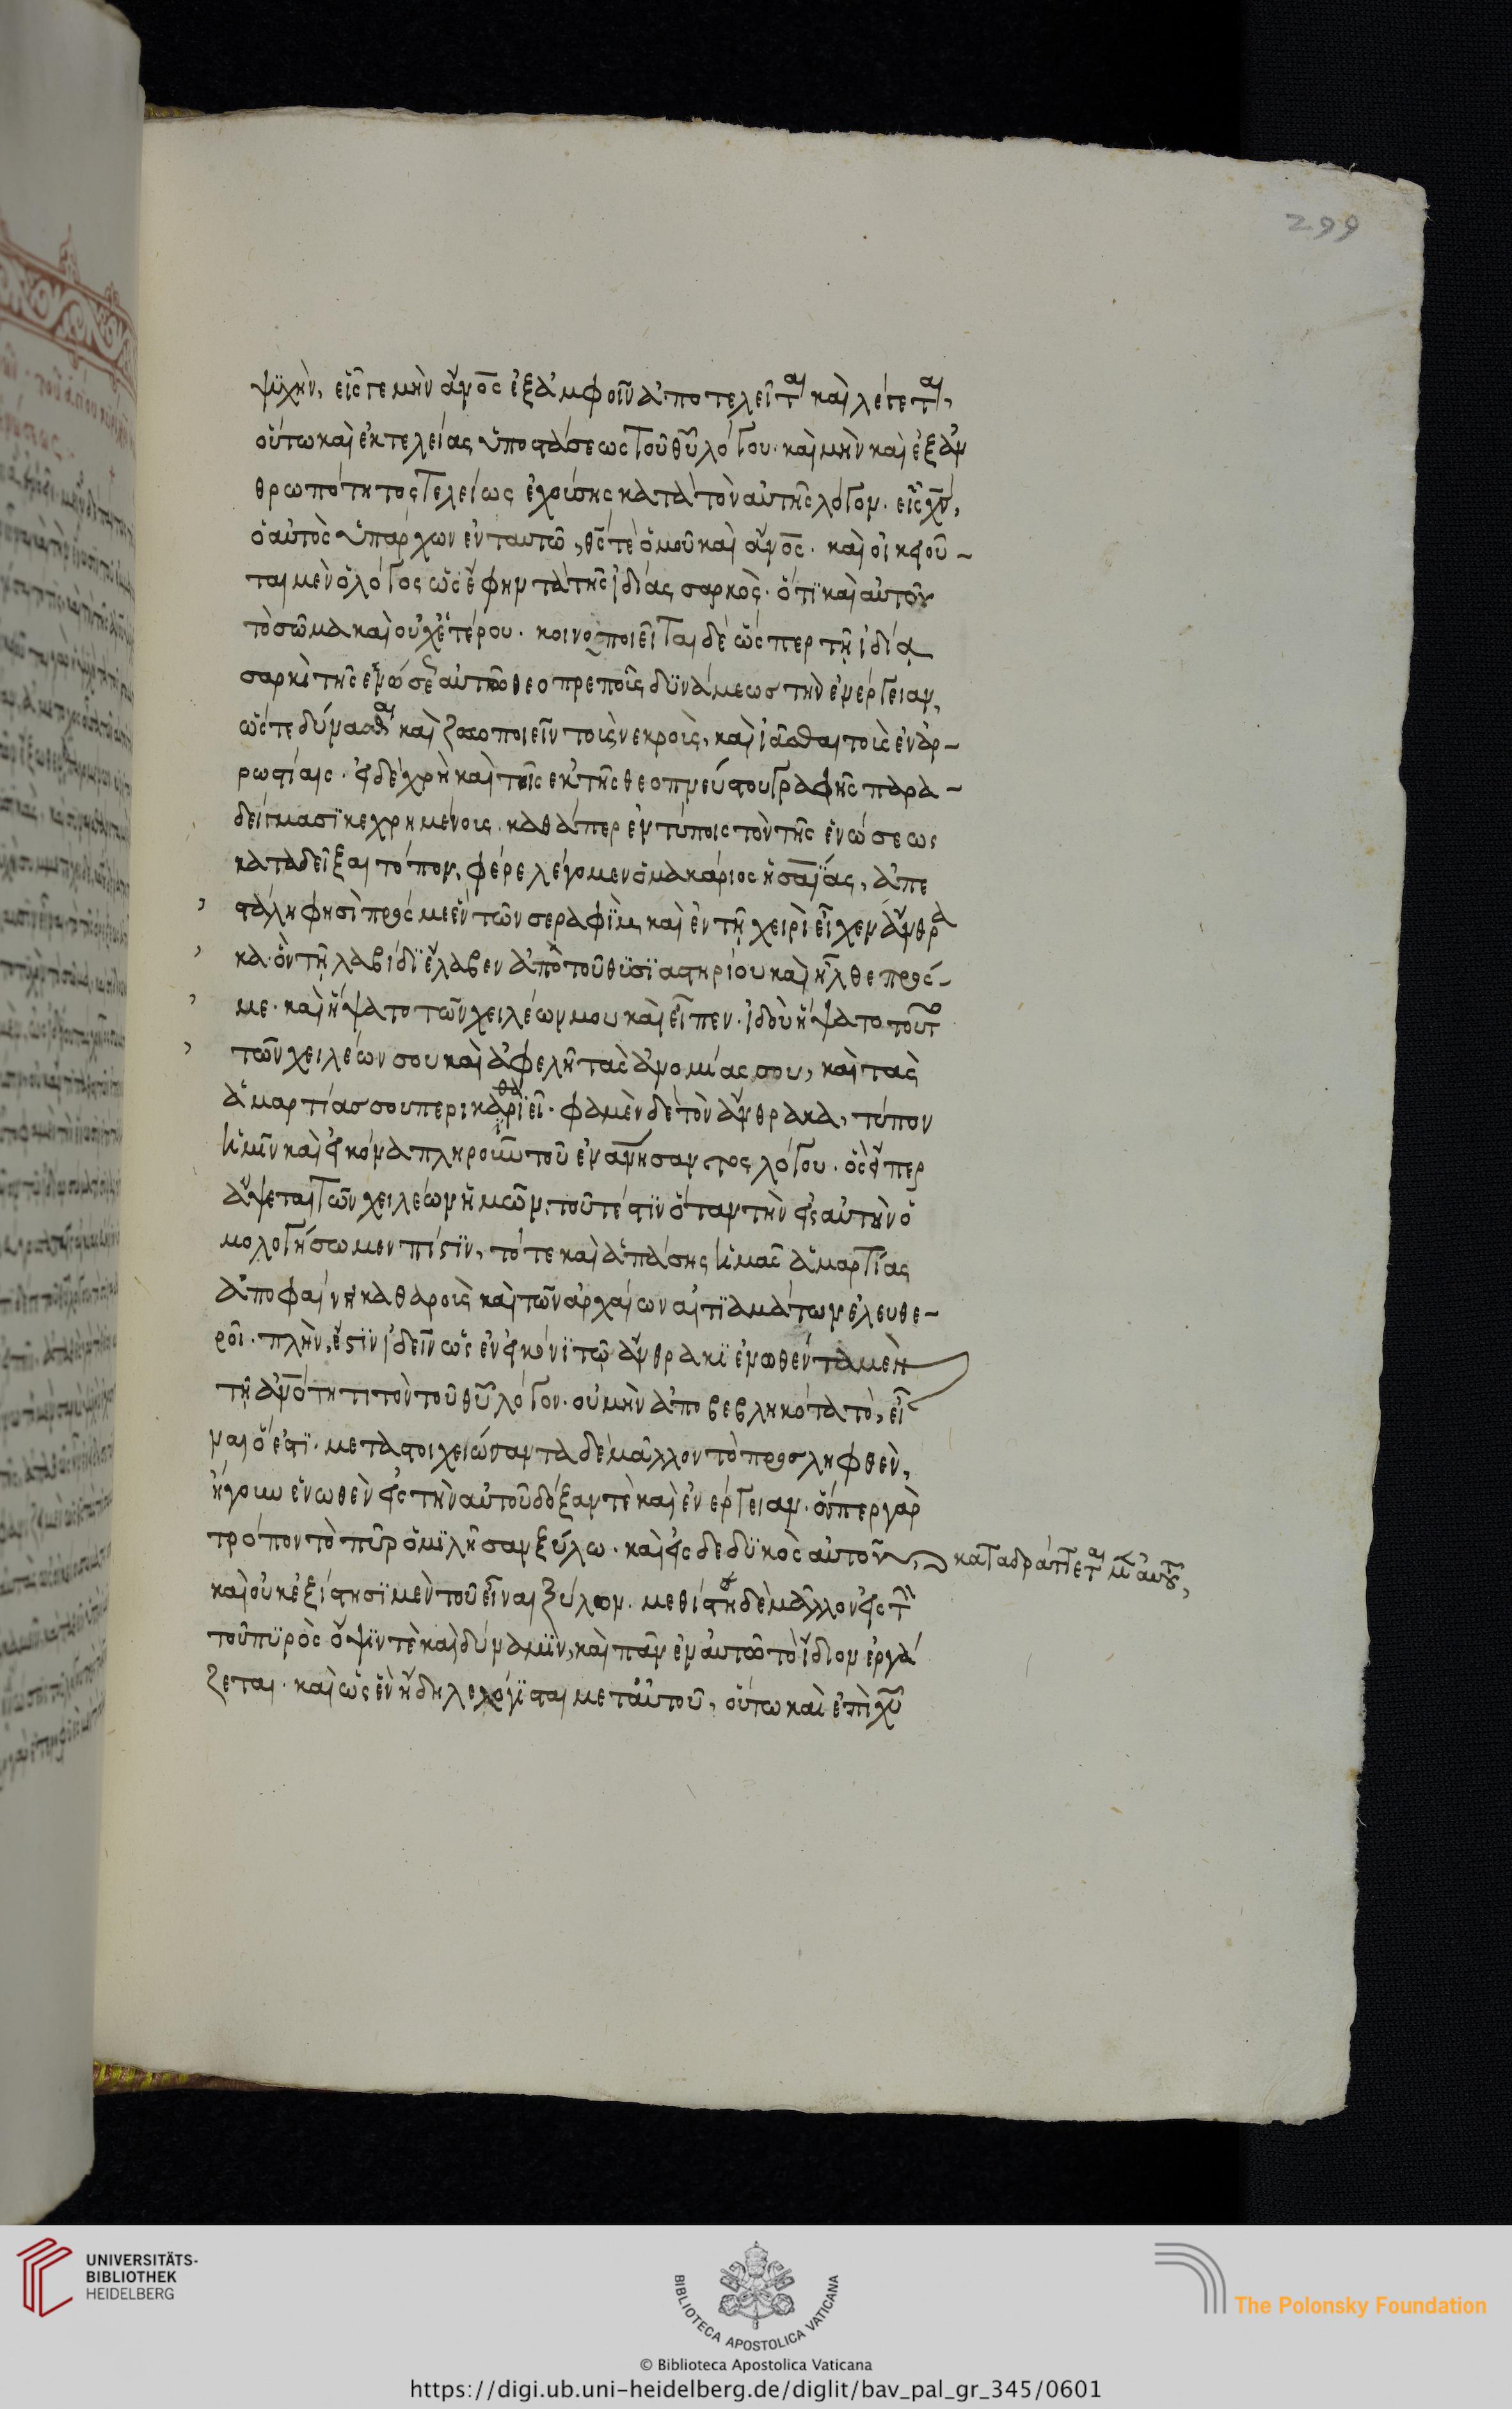 299
ψϋχὴν, εἷς τε μὴν ἄνος ἐξ ἀμφοῖν ἀποτελεῖται καὶ λέγεται,
οὕτω καὶ ἐκ τελείας ὑποστάσεως τοῦ θυ λόγου. καὶ μὴν καὶ ἐξ ἀν
θρωπότητος τελείως ἐχούσης κατὰ τὸν αὐτῆς λόγον. εἷς χς,
ὁ αὐτὸς ὑπάρχων ἐν ταυτῶ, θς τὲ ὁμοῦ καὶ ἄνος. καὶ οἰκειοῦ-
ται μὲν ὁ λόγος ὡς ἔφην τὰ τῆς ἰδίας σαρκὸς. ὅτι καὶ αὐτοῦ
τὸ σῶμα καὶ οὐχ ἑτέρου. κοινοποιεῖται δὲ ὥσπερ τῇ ἰδίᾳ
σαρκὶ τῆς ἐνούσης αὐτῶ θεοπρεποῦς δυνάμεως τὴν ἐνέργειαν,
ὥστε δύνασθαι καὶ ζωοποιεῖν τοὺς νεκροὺς, καὶ ἰᾶσθαι τοὺς ἐν ἀρ-
ρωστίαις. εἰ δὲ χρὴ καὶ τοῖς ἐκ τῆς θεοπνεύστου γραφῆς παρα-
δείγμασϊ κεχρημένοις. καθάπερ ἐν τύποις τὸν τῆς ἑνώσεως
καταδεῖξαι τόπον, φέρε λέγομεν ὁ μακάριος ἡσαΐας, ἀπε
στάλη φησὶ πρός με ἓν τῶν σεραφὶμ, καὶ ἐν τῇ χειρὶ εἶχεν ἄνθρα
κα. ὃν τῇ λαβίδϊ ἔλαβεν ἀπὸ τοῦ θυσϊαστηρίου καὶ ἦλθε πρός-
με. καὶ ἥψατο τῶν χειλέων μου καὶ εἶπεν. ἰδοὺ ἥψατο τοῦτο
τῶν χειλέων σου καὶ ἀφελεῖ τὰς ἀνομίας σου, καὶ τὰς
ἁμαρτίας σου περικαθαριεῖ. φαμὲν δὲ τὸν ἄνθρακα, τύπον
ἡμῖν καὶ εἰκόνα πληροῦν τοῦ ἐνανησαντος λόγου. ὃς εἴπερ
ἅψεται τῶν χειλέων ἡμῶν. τουτέστϊν ὅταν τὴν εἰς αὐτὴν ὁ
μολογήσωμεν πίστϊν, τότε καὶ ἁπάσης ἡμᾶς ἁμαρτίας
ἀποφαίνει καθαροὺς καὶ τῶν ἀρχαίων αἰτϊαμάτων ἐλευθέ-
ροι. πλὴν, ἔστϊν ἰδεῖν ὡς ἐν εἰκόνϊ τῷ ἄνθρακϊ ἑνωθέντα μὲν
τῇ ἀνότητι τὸν τοῦ θυ λόγον. οὐ μὴν ἀποβεβληκότα τὸ, εἶ
ναι ὅ ἐστϊ. μεταστοιχειώσαντα δὲ μᾶλλον τὸ προσληφθὲν,
ἤγουν ἑνωθὲν εἰς τὴν αὐτοῦ δόξαν τὲ καὶ ἐνέργειαν. ὅνπερ γὰρ
τρόπον τὸ πῦρ ὁμϊλῆσαν ξύλω. καὶ εἰς δεδϋκὸς αὐτοῦ, καταδράττεται μ αὐτοῦ,
καὶ οὐκ ἐξίστησϊ μὲν τοῦ εἶναι ξύλον. μεθίστησι δὲ μᾶλλον εἰς τὴν
τοῦ πυρὸς ὄψϊν τὲ καὶ δύναμϊν, καὶ πᾶν ἐν αὐτῶ τὸ ἴδιον ἐργά
ζεται. καὶ ὡς ἓν ἤδη λελόγϊσται μετ αὐτοῦ, οὕτω καὶ ἐπὶ χυ
UNIVERSITÄTS-
BIBLIOTHEK
HEIDELBERG
BIBLIOTECA APOSTOLICA VATICANA
The Polonsky Foundation
© Biblioteca Apostolica Vaticana
https://digi.ub.uni-heidelberg.de/diglit/bav_pal_gr_345/0601